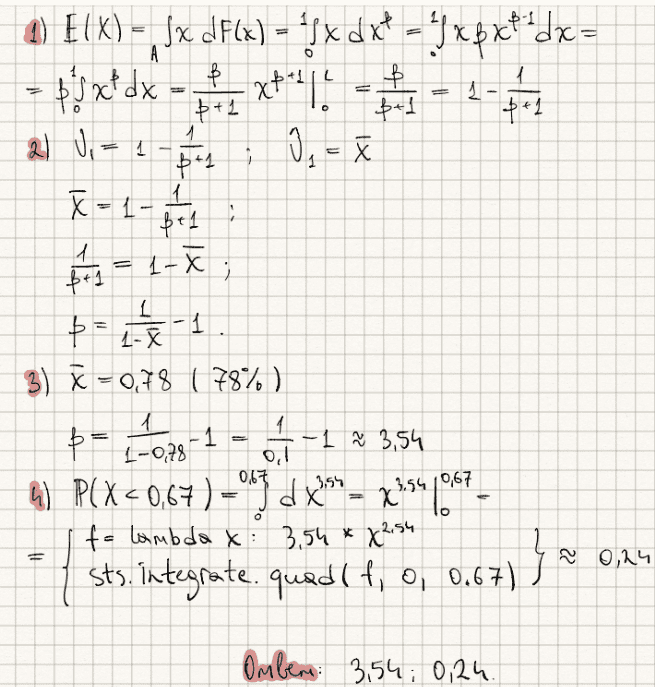 1) E(X) = ∫_A x dF(x) = ∫₀¹ x dx^p = ∫₀¹ x p x^{p-1} dx =
= p ∫₀¹ x^p dx = p/(p+1) x^{p+1} |₀¹ = p/(p+1) = 1 - 1/(p+1)
2) ν₁ = 1 - 1/(p+1) ; ν̂₁ = x̄
x̄ = 1 - 1/(p+1) ;
1/(p+1) = 1 - x̄ ;
p = 1/(1-x̄) - 1 .
3) x̄ = 0,78 ( 78% )
p = 1/(1-0,78) - 1 = 1/0,1 - 1 ≈ 3,54
4) P(X < 0,67) = ∫₀^{0,67} d x^{3,54} = x^{3,54} |₀^{0,67} -
= { f = lambda x : 3,54 * x^{2,54}
sts. integrate. quad( f, 0, 0.67) } ≈ 0,24
Ответ: 3,54 ; 0,24.